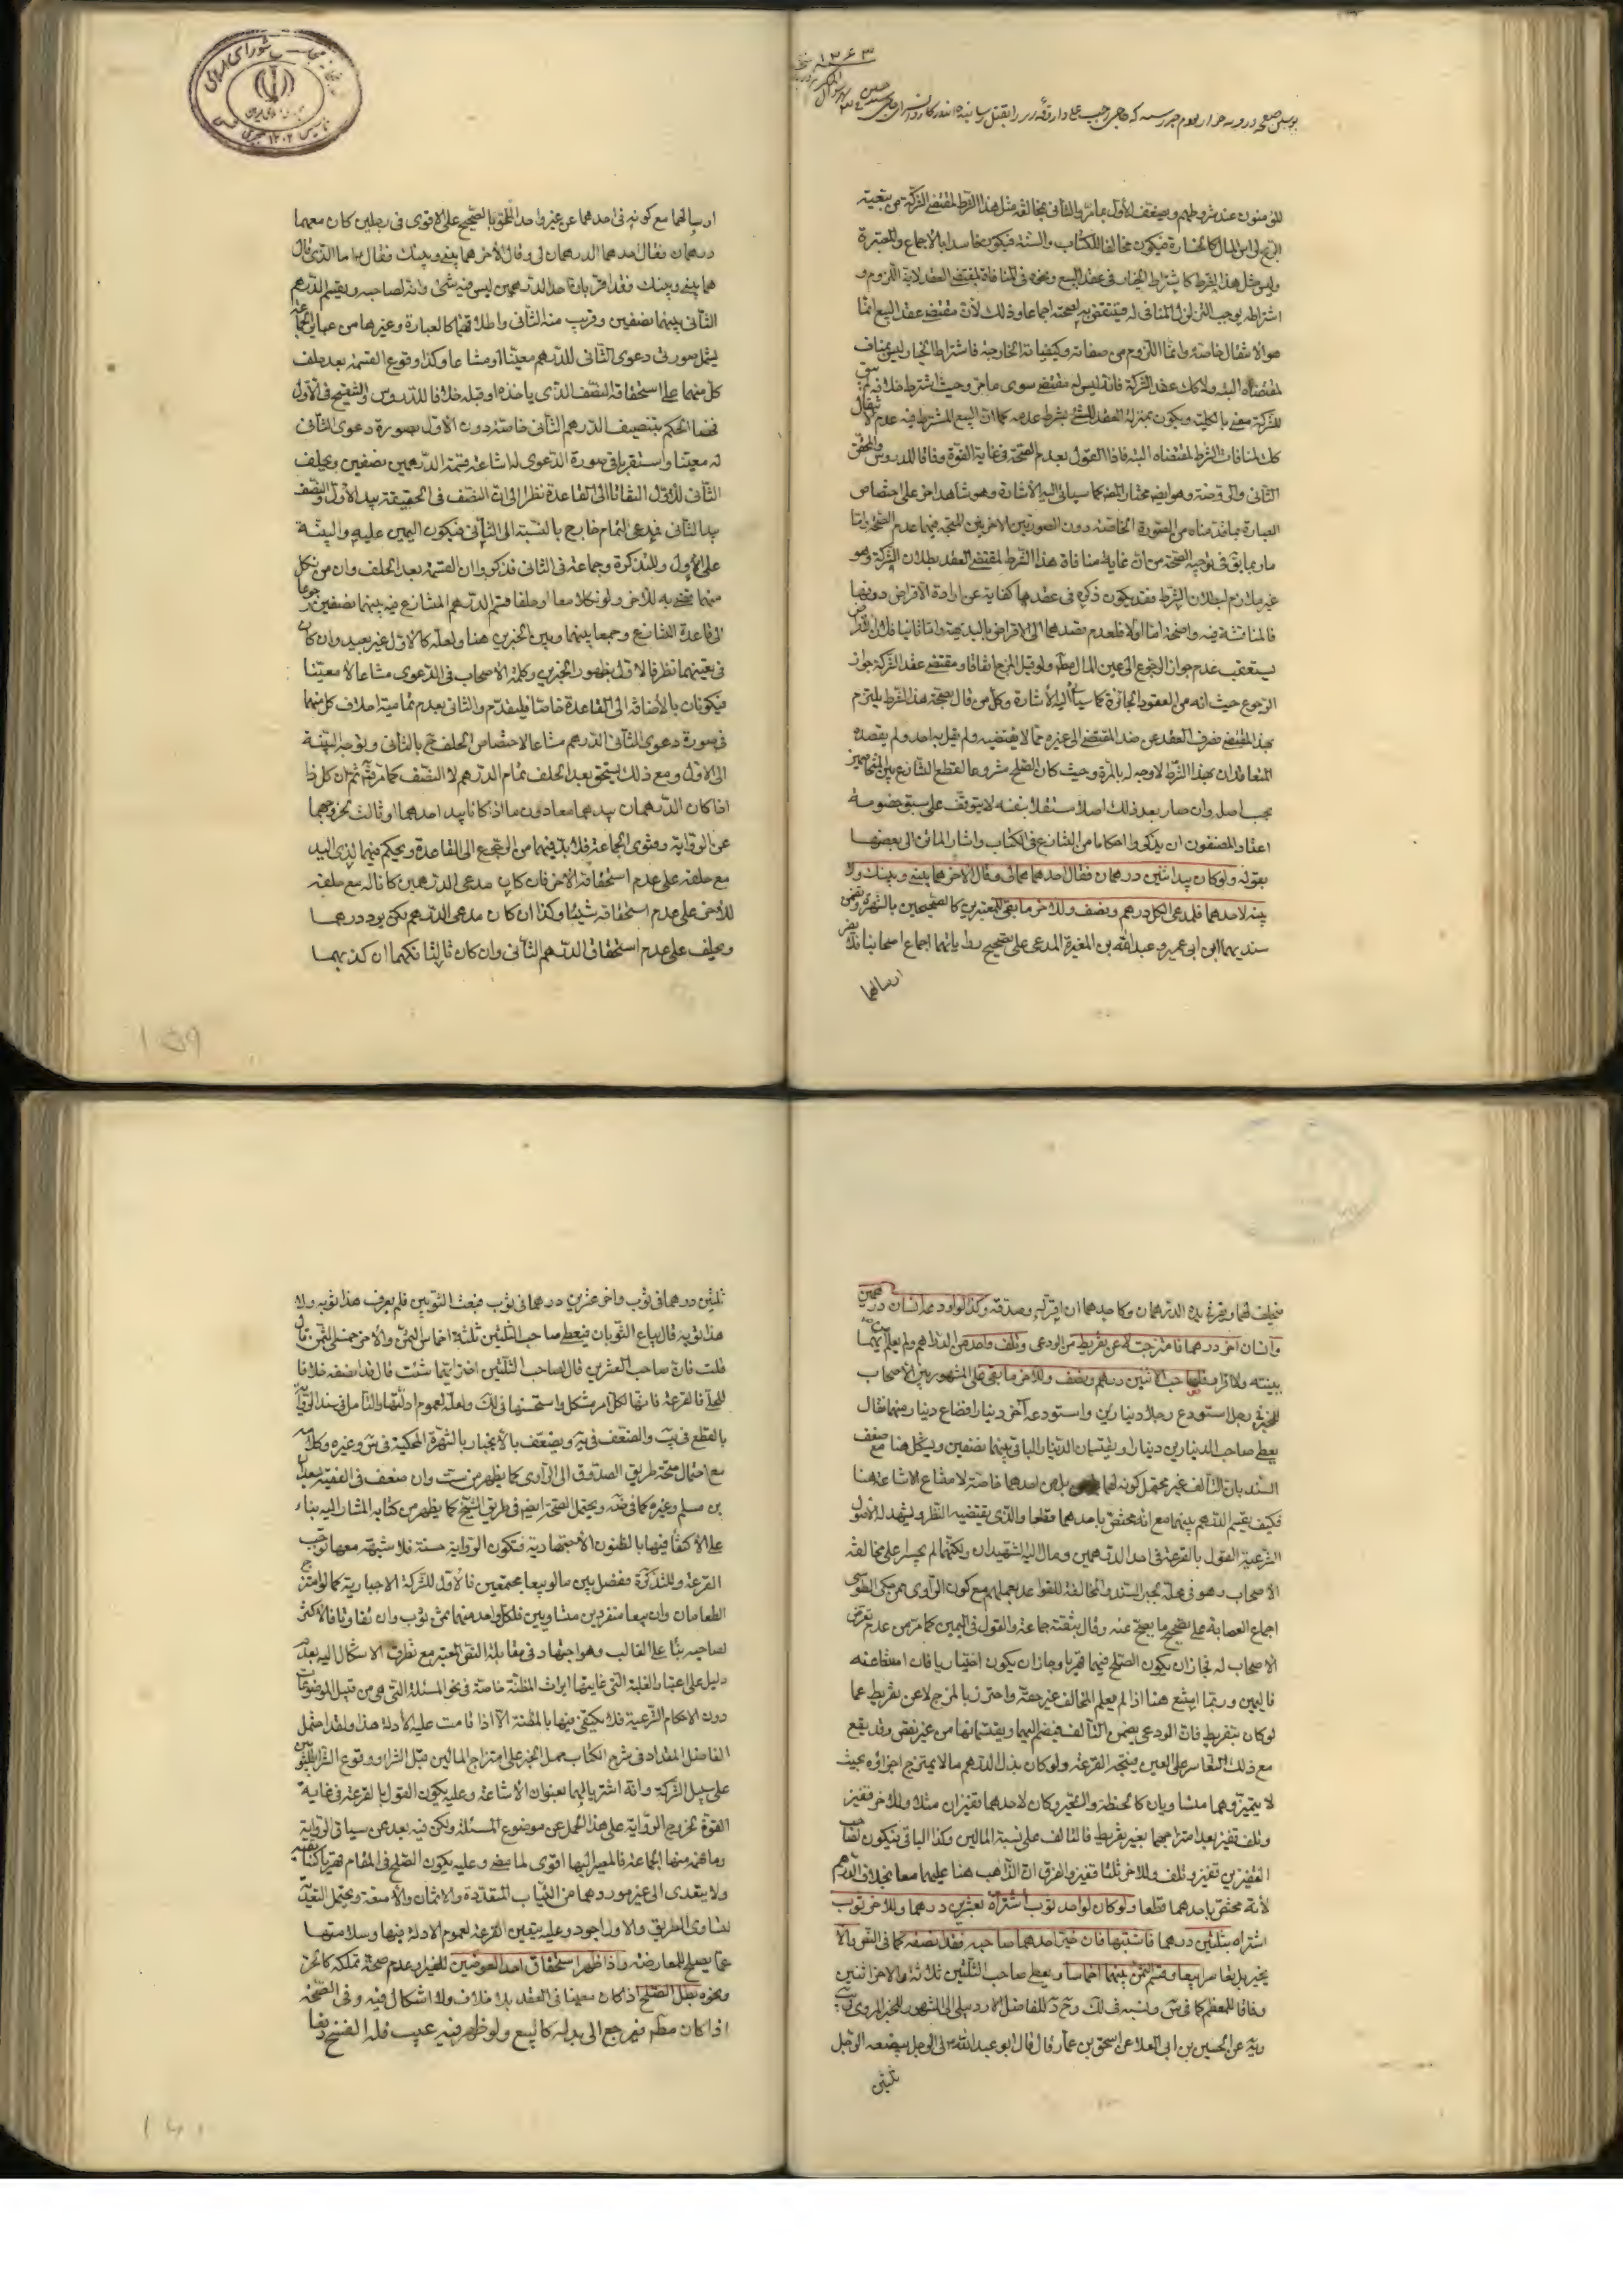 ۱۳۶۳
للمؤمنون عند شروطهم ويضعف الأول بما مر والثاني بمخالفة مثل هذا الشرط لمقتضى الشركة من تبعية
الربح لرأس المال كالخسارة فيكون مخالفا للكتاب والسنة فيكون فاسدا بالإجماع والمعتبرة
وليس مثل هذا الشرط كاشتراط الخيار في عقد البيع ونحوه في المنافاة لمقتضى العقد لأنه اللزوم و
اشتراطه يوجب التزلزل المنافي له فينتقض به لصحته إجماعا وذلك لأن مقتضى عقد البيع إنما
هو الانتقال خاصة وإنما اللزوم من صفاته وكيفياته الخارجة فاشتراط الخيار ليس بمناف
لمقتضاه البتة ولا كك عقد الشركة فإنه ليس له مقتضى سوى ما مر وحيث اشترط خلافه لم يبق
للشركة معنى بالكلية ويكون بمنزلة العقد للشئ بشرط عدمه كما أن البيع المشترط فيه عدم الانتقال
كك لمنافاة الشرط لمقتضاه البتة فاذا القول بعدم الصحة في غاية القوة وفاقا للدروس والمحقق
الثاني والروضة وهو ايضا مختار المص كما سيأتي اليه الأشارة وهو شاهد اخر على اختصاص
العبارة بما قدمناه من الصورة الخاصة دون الصورتين الاخريين المتجه فيهما عدم الصحة واما
ما ربما يق في توجيه الصحة من ان غاية منافاة هذا الشرط لمقتضى العقد بطلان الشركة وهو
غير ملازم لبطلان الشرط فقد يكون ذكره في عقدها كفاية عن ارادة الاقراض دونها
فالمناقشة فيه واضحة اما اولا فلعدم قصدهما الى الاقراض بالبديهة واما ثانيا فلأن القرض
يستعقب عدم جواز الرجوع الى عين المال مطلقا ولو قبل المزج اتفاقا ومقتضى عقد الشركة جواز
الرجوع حيث انه من العقود الجائزة كما سيأتي اليه الأشارة وكل من قال بصحة هذا الشرط يلتزم
بهذا المقتضى فصرف العقد عن ضد المقتضى الى غيره مما لا يقتضيه ولم يقل به احد ولم يقصده
المتعاقدان بهذا الشرط لا وجه له بالمرة وحيث كان الصلح مشروعا لقطع التنازع بين المتخاصمين
بحسب اصله وان صار بعد ذلك اصلا مستقلا بنفسه لا يتوقف على سبق خصومة
اعتاد المصنفون ان يذكروا احكاما من التنازع في الكتاب واشار الماتن الى بعضها
بقوله ولو كان بيد اثنين درهمان فقال احدهما هما لي وقال الآخر هما بيني وبينك ولا
بينة لاحدهما فلمدعي الكل درهم ونصف وللاخر ما بقي للمعتبرين كالصحيحين بالشهرة و
سنديهما ابن ابي عمير وعبد الله بن المغيرة المدعى على تصحيح رواياتهما اجماع اصحابنا فلا يضر
ارسالهما
ارسالهما مع كونه في احدهما عن غير واحد الملحق بالصحيح على الاقوى في رجلين كان معهما
درهمان فقال احدهما الدرهمان لي وقال الآخر هما بيني وبينك فقال اما الذي قال
هما بيني وبينك فقد اقر بان احد الدرهمين ليس فيه شئ وانه لصاحبه ويقسم الدرهم
الثاني بينهما نصفين وقريب منه الثاني واطلاقهما كالعبارة وغيرها من عبائر الجماعة
يشمل صورتي دعوى الثاني للدرهم معينا او مشاعا وكذا وقوع القسمة بعد حلف
كل منهما على استحقاقه النصف الذي ياخذه او قبله خلافا للدروس والتنقيح في الاول
فخصا الحكم بتنصيف الدرهم الثاني خاصة دون الأول بصورة دعوى الثاني
له معينا واستقربا في صورة الدعوى له اشاعة قسمة الدرهمين نصفين ويحلف
الثاني للاول التفاتا الى القاعدة نظرا الى ان النصف في الحقيقة بيد الأول والنصف
بيد الثاني فمدعي التمام خارج بالنسبة الى الثاني فيكون اليمين عليه والبينة
على الأول وللتذكرة وجماعة في الثاني فذكروا ان القسمة بعد الحلف وان من نكل
منهما قضي به للآخر ولو نكلا معا او حلفا قسم الدرهم المتنازع فيه بينهما نصفين رجوعا
الى قاعدة التنازع وجمعا بينهما وبين الخبرين هنا ولعله كالاول غير بعيد وان كان
في تعينهما نظر فالاول بظهور الخبرين وكلمة الاصحاب في الدعوى مشاعا لا معينا
فيكونان بالأضافة الى القاعدة خاصا فليقدم والثاني بعدم تمامية احلاف كل منهما
في صورة دعوى الثاني الدرهم مشاعا لاختصاص الحلف ح بالثاني وتوجه البينة
الى الاول ومع ذلك يستحق بعد الحلف تمام الدرهم لا النصف كما مر ثم ان كل ذا
اذا كان الدرهمان بيدهما معا دون ما اذا كانا بيد احدهما او ثالث لخروجهما
عن الرواية وفتوى الجماعة فلابد فيهما من الرجوع الى القاعدة ويحكم فيهما لذي اليد
مع حلفه على عدم استحقاقه الآخر فان كان مدعي الدرهمين كانا له مع حلفه
للآخر على عدم استحقاقه شيئا وكذا ان كان مدعي الدرهم لكن يرد درهما
ويحلف على عدم استحقاق الدرهم الثاني وان كان ثالثا فكهما ان كذبهما
فيحلف لهما ويقر في يده الدرهمان وكاحدهما ان اقر له وصدقه وكذا لو اودعه انسان درهمين
وانسان آخر درهما فامتزجت لا عن تفريط من الودعي وتلف واحد من الدراهم ولم يعلم ايهما
بينة ولا اقرار فلصاحب الاثنين درهم ونصف وللاخر ما بقي على المشهور بين الأصحاب
للخبر في رجل استودع رجلا دينارين واستودعه آخر دينارا فضاع دينار منهما فقال
يعطى صاحب الدينارين دينارا ويقتسمان الدينار الباقي بينهما نصفين ويشكل هنا مع ضعف
السند بان التالف غير محتمل كونه لهما بل من احدهما خاصة لامتناع الاشاعة هنا
فكيف يقسم الدرهم بينهما مع انه مختص باحدهما قطعا والذي يقتضيه النظر ويشهد له الأصول
الشرعية القول بالقرعة في احد الدرهمين ومال اليه الشهيدان ولكنهما لم يجسرا على مخالفة
الاصحاب وهو في محله بجبر السند والمخالفة للقواعد بعملهم مع كون الراوي ممن حكى الطوسي
اجماع العصابة على تصحيح ما يصح عنه وقال بثقته جماعة والقول في اليمين كما مر من عدم تعرض
الاصحاب له فجاز ان يكون الصلح فيهما قهريا وجاز ان يكون اختياريا فان امتنعا عنه
فاليمين وربما امتنع هنا اذا لم يعلم المخالف عين حقه واحترز بالمزج لا عن تفريط عما
لو كان بتفريط فان الودعي يضمن التالف فيضم اليهما ويقتسمانها من غير نقص وقد يقع
مع ذلك التعاسر على العين فيتجه القرعة ولو كان بدل الدرهم مالا يمتزج اجزاؤه بحيث
لا يتميز وهما متساويان كالحنطة والشعير وكان لاحدهما قفيزان مثلا وللآخر قفيز
وتلف قفيز بعد امتزاجهما بغير تفريط فالتالف على نسبة المالين وكذا الباقي فيكون لصاحب
القفيزين قفيز وثلث وللآخر ثلثا قفيز والفرق ان الذاهب هنا عليهما معا بخلاف الدرهم
لأنه مختص باحدهما قطعا ولو كان لواحد ثوب اشتراه بعشرين درهما وللآخر ثوب
اشتراه بثلثين درهما فاشتبها فان خير احدهما صاحبه فقد انصفه كما في النص والا
يخير بل تعاسرا بيعا وقسم الثمن بينهما اخماسا ويعطى صاحب الثلثين ثلاثة والاخر اثنين
وفاقا للمعظم كما في س ولنسبه في لك وشرح د للفاضل الاردبيلي الى المشهور للخبر المروي في
يه عن الحسين بن ابي العلا عن اسحق بن عمار قال قال ابو عبد الله ع في الرجل يبضعه الرجل
ثلثين
ثلثين درهما في ثوب واخر عشرين درهما في ثوب فبعث الثوبين فلم يعرف هذا ثوبه ولا
هذا ثوبه قال يباع الثوبان فيعطى صاحب الثلثين ثلثة اخماس الثمن والآخر خمسي الثمن قال
قلت فان صاحب العشرين قال لصاحب الثلثين اختر ايهما شئت قال قد انصفه خلافا
للحلي فالقرعة فانها لكل امر مشكل واستحسنها في لك ولعله لعموم ادلتها والتأمل في سند الرواية
بالقطع في يب والضعف في يه ويضعف بالأنجبار بالشهرة المحكية في س وغيره وكلامه
مع احتمال صحة طريق الصدوق الى الراوي كما يظهر من ست وان ضعف في الفقيه بعلي
بن مسلم وغيره كما في ضه ويحتمل الصحة ايضا في طريق الشيخ كما يظهر من كتابه المشار اليه بناء
على الأكتفاء فيها بالظنون الأجتهادية فتكون الرواية حسنة فلا شبهة معها توجب
القرعة وللتذكرة ففصل بين ما لو بيعا مجتمعين فالأول للشركة الاجبارية كما لو امتزج
الطعامان وان بيعا منفردين متساويين فلكل واحد منهما ثمن ثوب وان تفاوتا فالأكثر
لصاحبه بناء على الغالب وهو اجتهاد في مقابلة النص المعتبر مع تطرق الاشكال اليه بعدم
دليل على اعتبار الغلبة التي غايتها ايراث المظنة خاصة في نحو المسئلة التي هي من قبيل الموضوعات
دون الاحكام الشرعية فلا يكتفى فيها بالمظنة الا اذا قامت عليه الأدلة هذا ولقد احتمل
الفاضل المقداد في شرح الكتاب حمل الخبر على امتزاج المالين قبل الشراء ووقوع الشراء للثوبين
على سبيل الشركة وانه اشترياهما بعنوان الأشاعة وعليه يكون القول بالقرعة في غاية
القوة لخروج الرواية على هذا الحمل عن موضوع المسئلة ولكن فيه بعد عن سياق الرواية
وما فهمه منها الجماعة فالمصير اليها اقوى لما مضى وعليه يكون الصلح في المقام قهريا كسابقيه
ولا يتعدى الى غير موردهما من الثياب المتعددة والاثمان والأمتعة ويحتمل التعدية
لتساوي الطريق والاول اجود وعليه يتعين القرعة لعموم الادلة فيها وسلامتها
عما يصلح للمعارضة واذا ظهر استحقاق احد العوضين للغير او عدم صحة تملكه كالخمر
ونحوه بطل الصلح اذا كان معينا في العقد بلا خلاف ولا اشكال فيه وفي الصحة
اذا كان مطلقا فيرجع الى بدله كالبيع ولو ظهر فيه عيب فله الفسخ دفعا